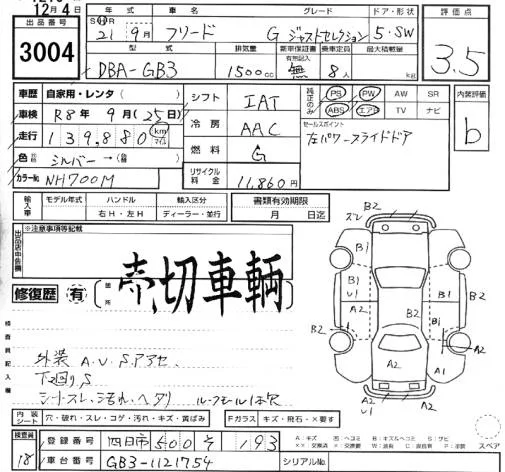 12月4日
出品番号
3004
年式 車名 グレード ドア・形状
S・H・R 21年9月 フリード G ジャストセレクション 5・SW
型式 排気量 新車保証書 有無記入 乗車定員 最大積載量
DBA-GB3 1500cc 無 8人 kg
評価点
3.5
車歴 自家用・レンタ
車検 R8年9月(25日)
走行 139,880 km マイル
色 シルバー→
カラーNo. NH700M
シフト IAT
冷房 AAC
燃料 G
リサイクル料金 11,860円
純正のみ PS PW AW SR
ABS エアB TV ナビ
セールスポイント
左パワースライドドア
内装評価
b
輸入車 モデル年式 ハンドル 輸入区分
年 右H・左H ディーラー・並行
書類有効期限
月 日迄
出品店申告欄
※注意事項等記載
売切車輌
修復歴 有 箇所
検査員記入欄
外装 A.U.S.アアセ.
下回り.S
シートスレ.ヨゴレ.ヘタリ ルーフモール浮
内装シート 穴・破れ・スレ・コゲ・汚れ・キズ・黄ばみ
Fガラス キズ・飛石・×要す
検査員 18
登録番号 四日市 500 そ 193
車台番号 GB3-1121754
シリアルNo.
B2
スレ
B2
B1
B1
B1
U1
A2
A2
B1
A2
A1
A2
A2
U1
スペア